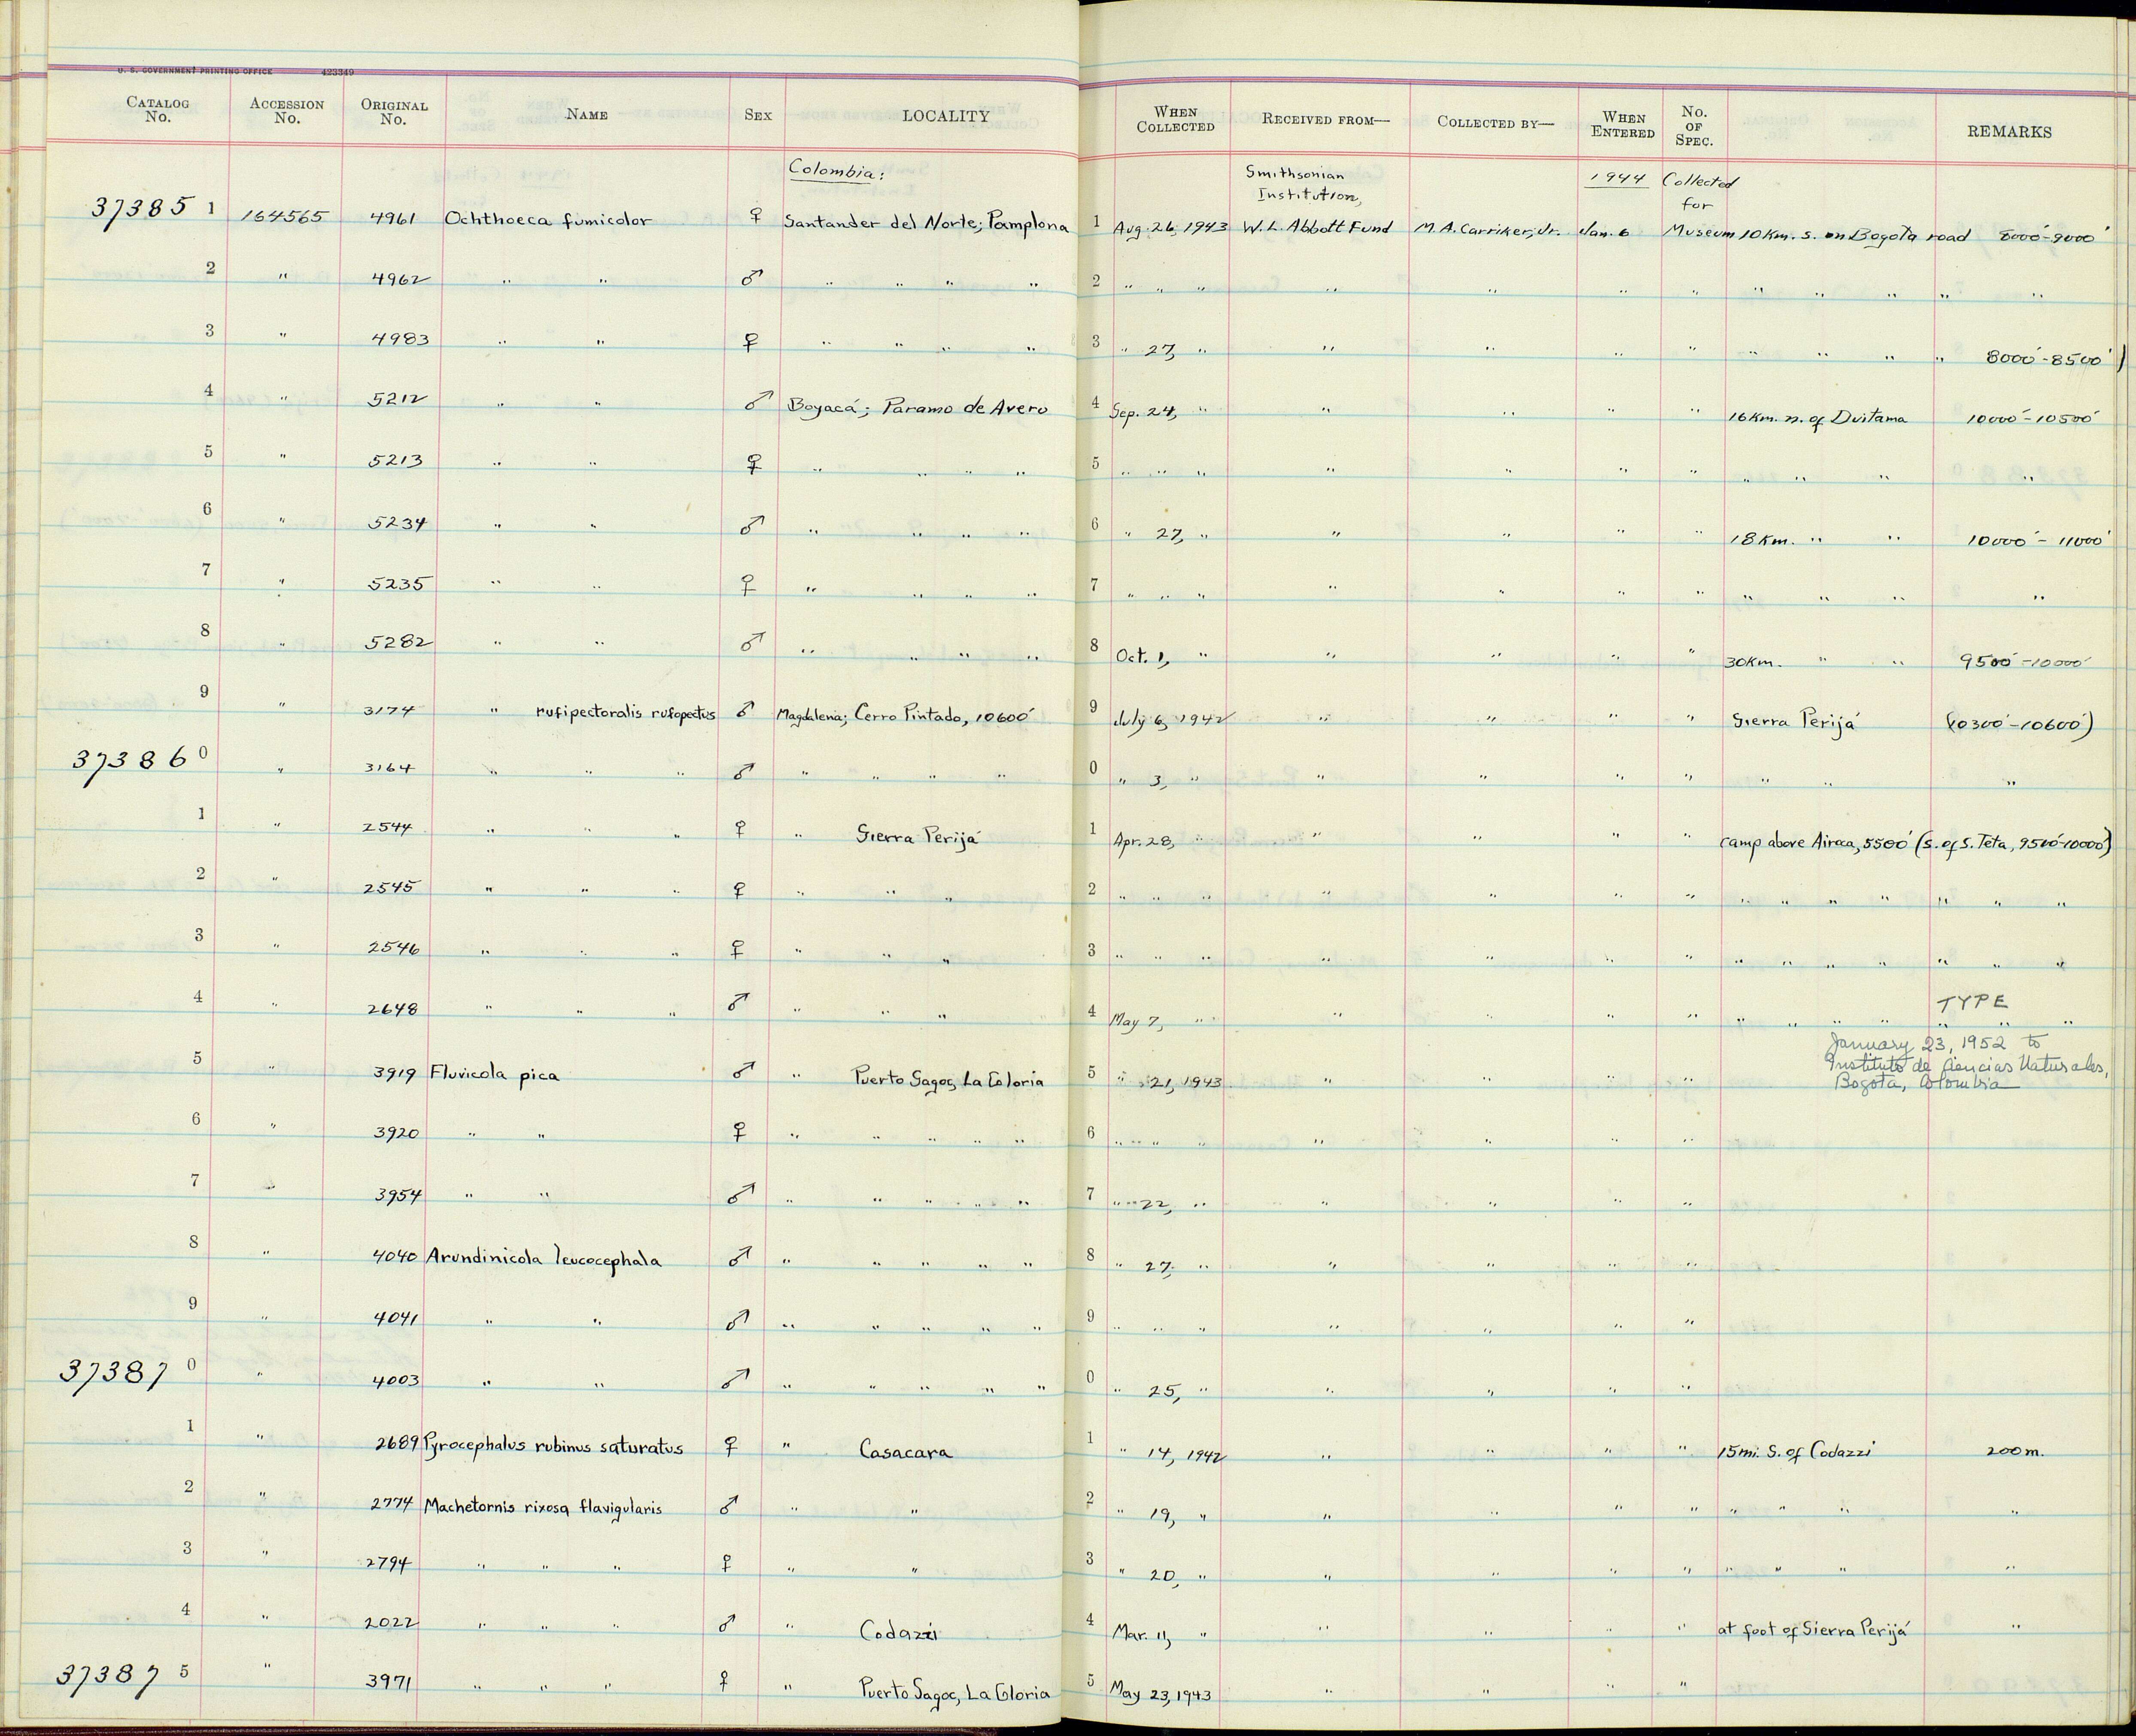 U. S. GOVERNMENT PRINTING OFFICE 423349
CATALOG No. ACCESSION No. ORIGINAL No. NAME SEX LOCALITY WHEN COLLECTED RECEIVED FROM— COLLECTED BY— WHEN ENTERED No. OF SPEC. REMARKS
Colombia: Smithsonian Institution, 1944 Collected for
37385 1 164565 4961 Ochthoeca fumicolor ♀ Santander del Norte; Pamplona 1 Aug. 26, 1943 W. L. Abbott Fund M. A. Carriker, Jr. Jan. 6 Museum 10 Km. s. on Bogota road 8000'-9000'
2 " 4962 " " ♂ " " " " 2 " " " " " " " " " " " "
3 " 4983 " " ♀ " " " " 3 " 27, " " " " " " " " " 8000'-8500')
4 " 5212 " " ♂ Boyacá; Paramo de Avero 4 Sep. 24, " " " " " 16 Km. n. of Duitama 10000'-10500'
5 " 5213 " " ♀ " " " " 5 " " " " " " " " " " "
6 " 5234 " " ♂ " " " " 6 " 27, " " " " " 18 Km. " " 10000'-11000'
7 " 5235 " " ♀ " " " " 7 " " " " " " " " " " "
8 " 5282 " " ♂ " " " " 8 Oct. 1, " " " " " 30 Km. " " 9500'-10000'
9 " 3174 " rufipectoralis rufopectus ♂ Magdalena; Cerro Pintado, 10600' 9 July 6, 1942 " " " " Sierra Perijá (10300'-10600')
37386 0 " 3164 " " " ♂ " " " " 0 " 3, " " " " " " " "
1 " 2544 " " " ♀ " Sierra Perijá 1 Apr. 28, " " " " " camp above Airoca, 5500' (S. of S. Teta, 9500'-10000')
2 " 2545 " " " ♀ " " " 2 " " " " " " " " " " " " " "
3 " 2546 " " " ♀ " " " 3 " " " " " " " " " " " " " "
TYPE
4 " 2648 " " " ♂ " " " 4 May 7, " " " " " " " " " " " "
January 23, 1952 to
Instituto de Ciencias Naturales,
Bogota, Colombia
5 " 3919 Fluvicola pica ♂ " Puerto Sagoc, La Gloria 5 " 21, 1943 " " " "
6 " 3920 " " ♀ " " " " " 6 " " " " " " "
7 " 3954 " " ♂ " " " " " 7 " 22, " " " " "
8 " 4040 Arundinicola leucocephala ♂ " " " " " 8 " 27, " " " " "
9 " 4041 " " ♂ " " " " " 9 " " " " " " "
37387 0 " 4003 " " ♂ " " " " " 0 " 25, " " " " "
1 " 2689 Pyrocephalus rubinus saturatus ♀ " Casacara 1 " 14, 1942 " " " " 15 mi. S. of Codazzi 200 m.
2 " 2774 Machetornis rixosa flavigularis ♂ " " 2 " 19, " " " " " " " " "
3 " 2794 " " " ♀ " " 3 " 20, " " " " " " " " "
4 " 2022 " " " ♂ " Codazzi 4 Mar. 11, " " " " " at foot of Sierra Perijá "
37387 5 " 3971 " " " ♀ " Puerto Sagoc, La Gloria 5 May 23, 1943 " " " "